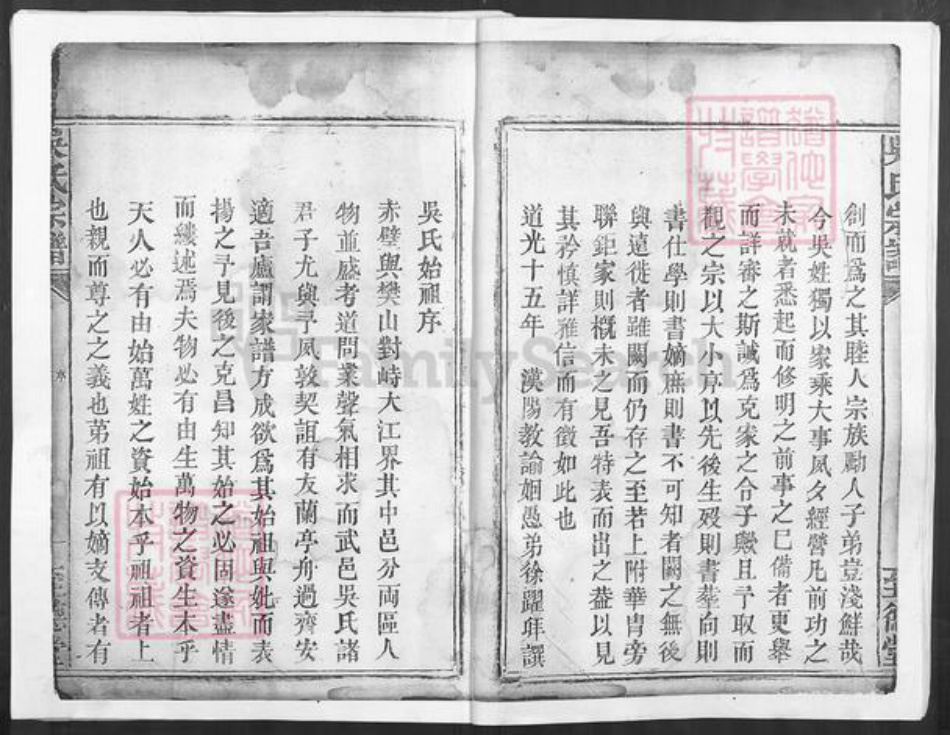 創而爲之其睦人宗族勵人子弟豈淺鮮哉
今吳姓獨以家乘大事夙夕經營凡前功之
未就者悉起而修明之前事之已備者更舉
而詳審之斯誠爲克家之令子歟且予取而
觀之宗以大小宗以先後生歿則書塟向則
書仕學則書嫡庶則書不可知者闕之無後
與遠徙者雖闕而仍存之至若上附華胄旁
聯鉅家則概未之見吾特表而出之葢以見
其矜慎詳雅信而有徵如此也
道光十五年 漢陽教諭姻愚弟徐躍 譔
吳氏始祖序
赤壁與樊山對峙大江界其中邑分両區人
物並盛考道問業聲氣相求而武邑吳氏諸
君子尤與予夙敦契誼有友蘭亭舟過齊安
適吾廬謂家譜方成欲爲其始祖與妣而表
揚之予見後之克昌知其始之必固遂盡情
而縷述焉夫物必有由生萬物之資生本乎
天人必有由始萬姓之資始本乎祖祖者上
也親而尊之之義也第祖有以嫡支傳者有
吳氏宗譜
序
至德堂
吳氏宗譜
至德堂
FamilySearch